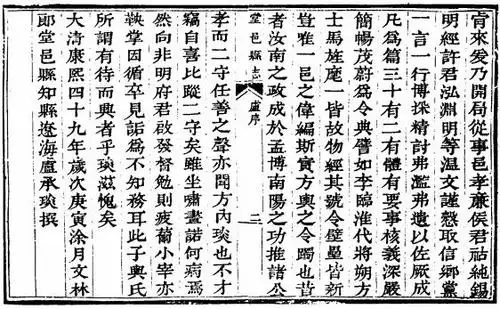 肯來爰乃開局從事邑孝廉侯君祜純錫
明經許君泓淵明等溫文謹慤取信鄉黨
一言一行博採精討弗濫弗遺以佐厥成
凡為篇三十有二有體有要事核義深嚴
簡暢茂蔚為令典譬如李臨淮代將朔方
士馬旌麾一皆故物經其號令壁壘皆新
豈唯一邑之偉編斯實方輿之令躅也昔
者汝南之政成於孟博南陽之功推諸公
堂邑縣志 盧序 二
孝而二守任善之聲亦聞方內琰也不才
竊自喜比蹤二守矣雖坐嘯畫諾何病焉
然向非明府君啟發督勉則疲薾小宰亦
鞅掌因循卒見詬為不知務耳此子輿氏
所謂有待而興者乎琰滋愧矣
大清康熙四十九年歲次庚寅涂月文林
郎堂邑縣知縣遼海盧承琰撰